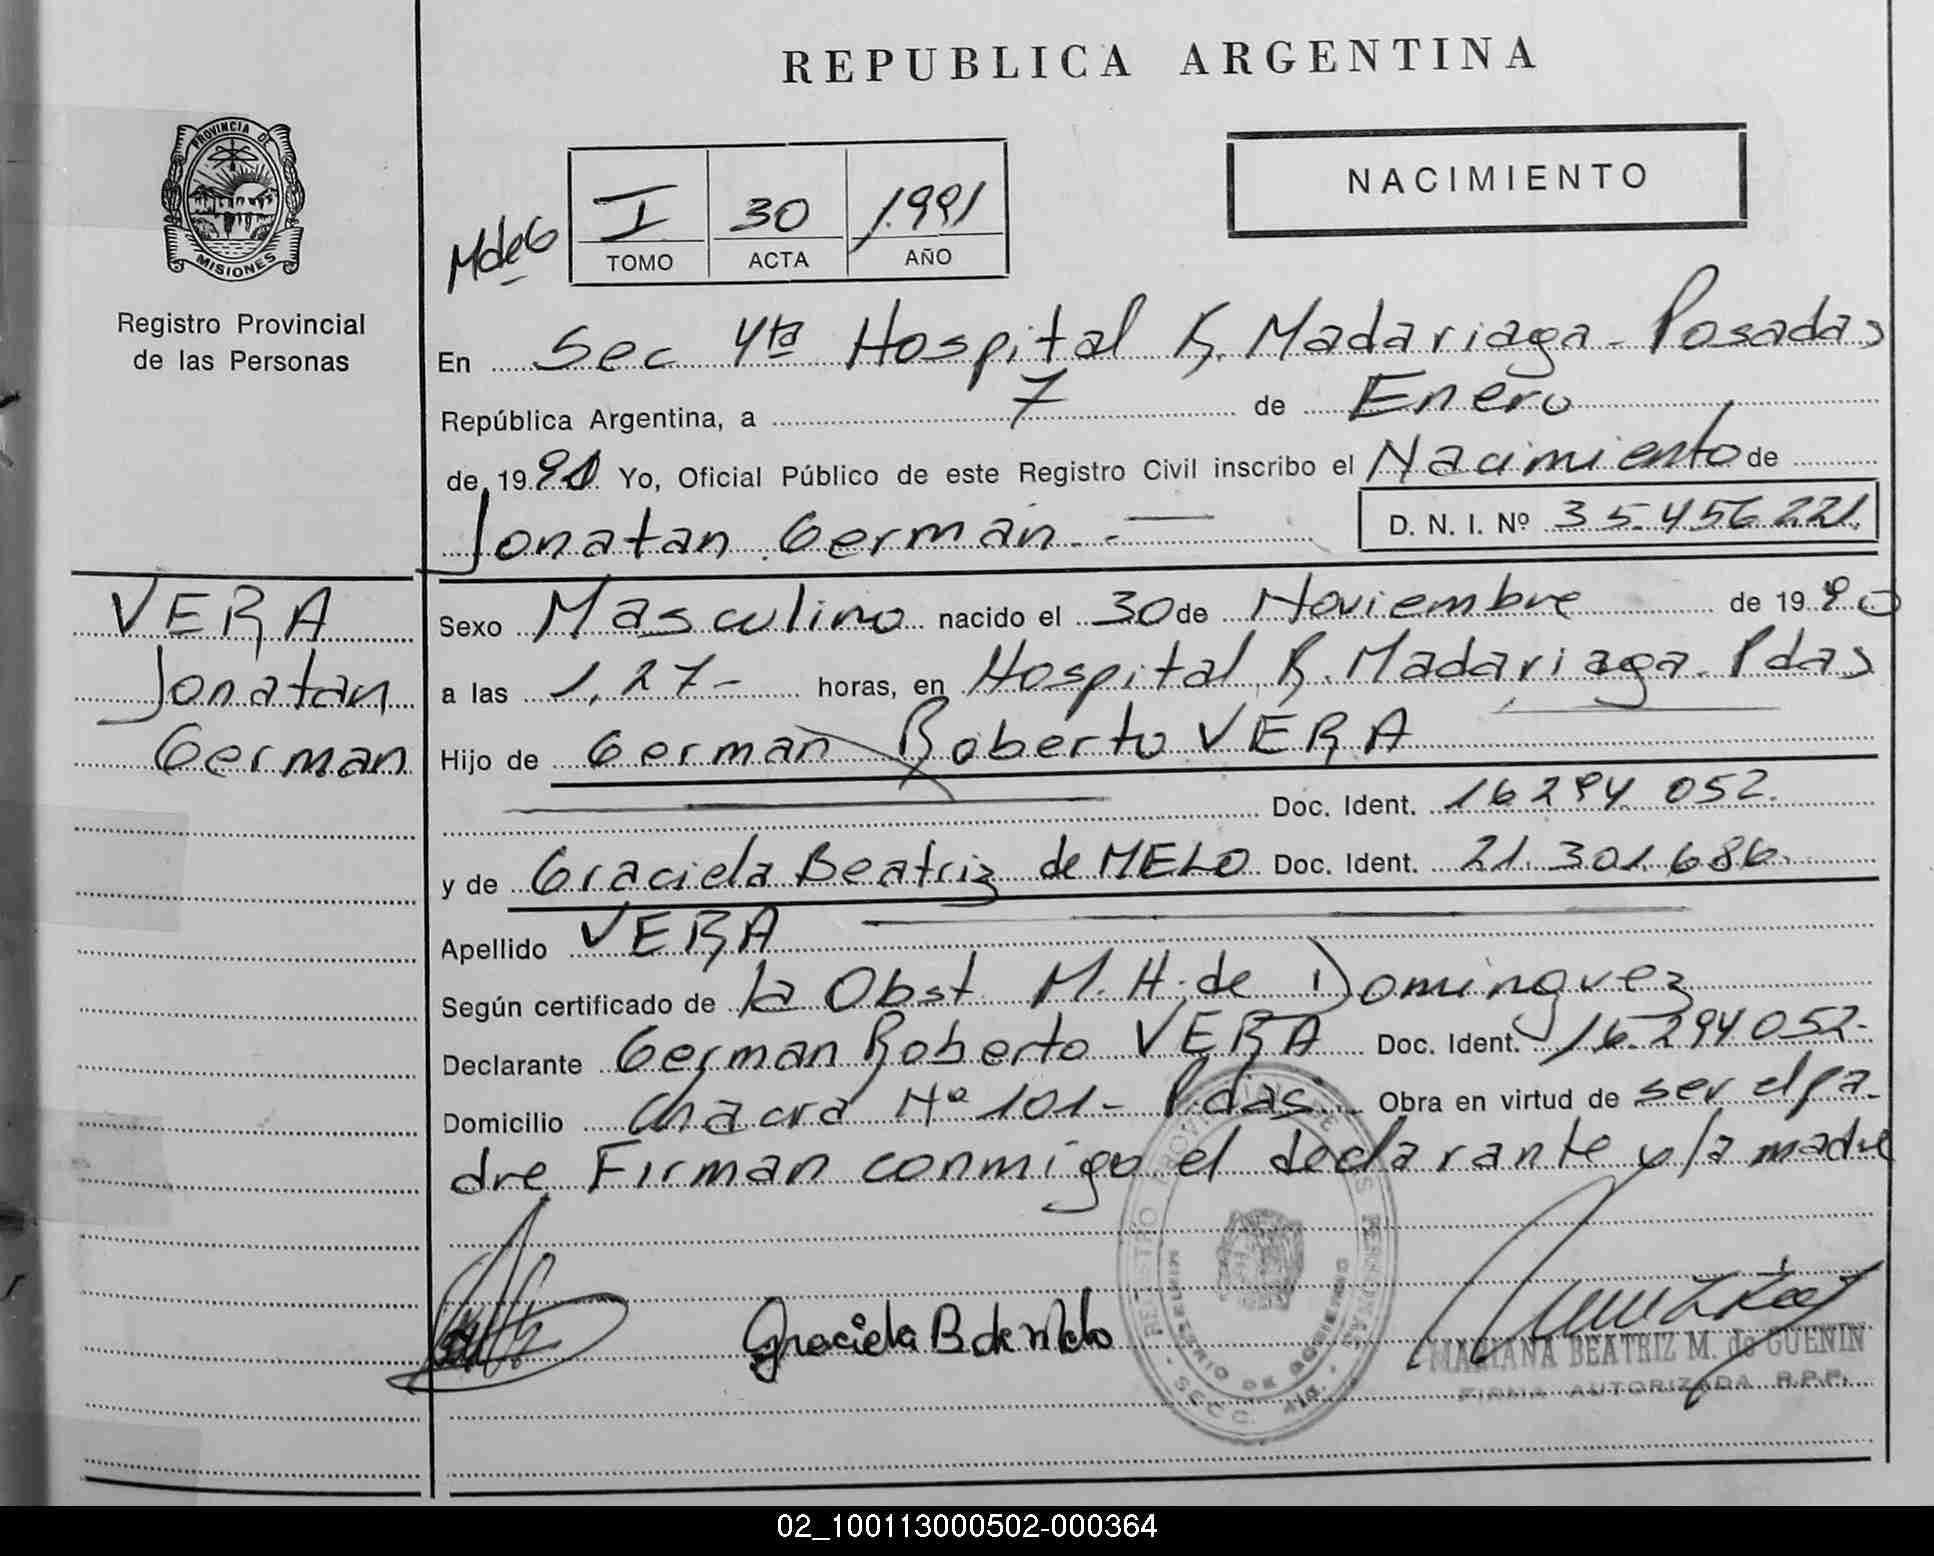 REPUBLICA ARGENTINA
PROVINCIA DE MISIONES
Registro Provincial
de las Personas
MdeG
I 30 1991
TOMO ACTA AÑO
NACIMIENTO
En Sec 4ta Hospital R. Madariaga - Posadas
República Argentina, a 7 de Enero
de 1991 Yo, Oficial Público de este Registro Civil inscribo el Nacimiento de
Jonatan German.-
D. N. I. Nº 35.456.221.
VERA
Jonatan
German
Sexo Masculino nacido el 30 de Noviembre de 1990
a las 1,27- horas, en Hospital R. Madariaga. Pdas
Hijo de German Roberto VERA
Doc. Ident. 16 294 052.
y de Graciela Beatriz de MELO Doc. Ident. 21.301.686.
Apellido VERA
Según certificado de la Obst M.H. de Dominguez
Declarante German Roberto VERA Doc. Ident. 16.294 052-
Domicilio Chacra Nº 101- Pdas. Obra en virtud de ser el pa-
dre Firman conmigo el declarante y la madre
Graciela B de Melo
REGISTRO PROVINCIAL DE LAS PERSONAS
MINISTERIO DE GOBIERNO
MARIANA BEATRIZ M. de GUENIN
FIRMA AUTORIZADA R.P.P.
02_100113000502-000364